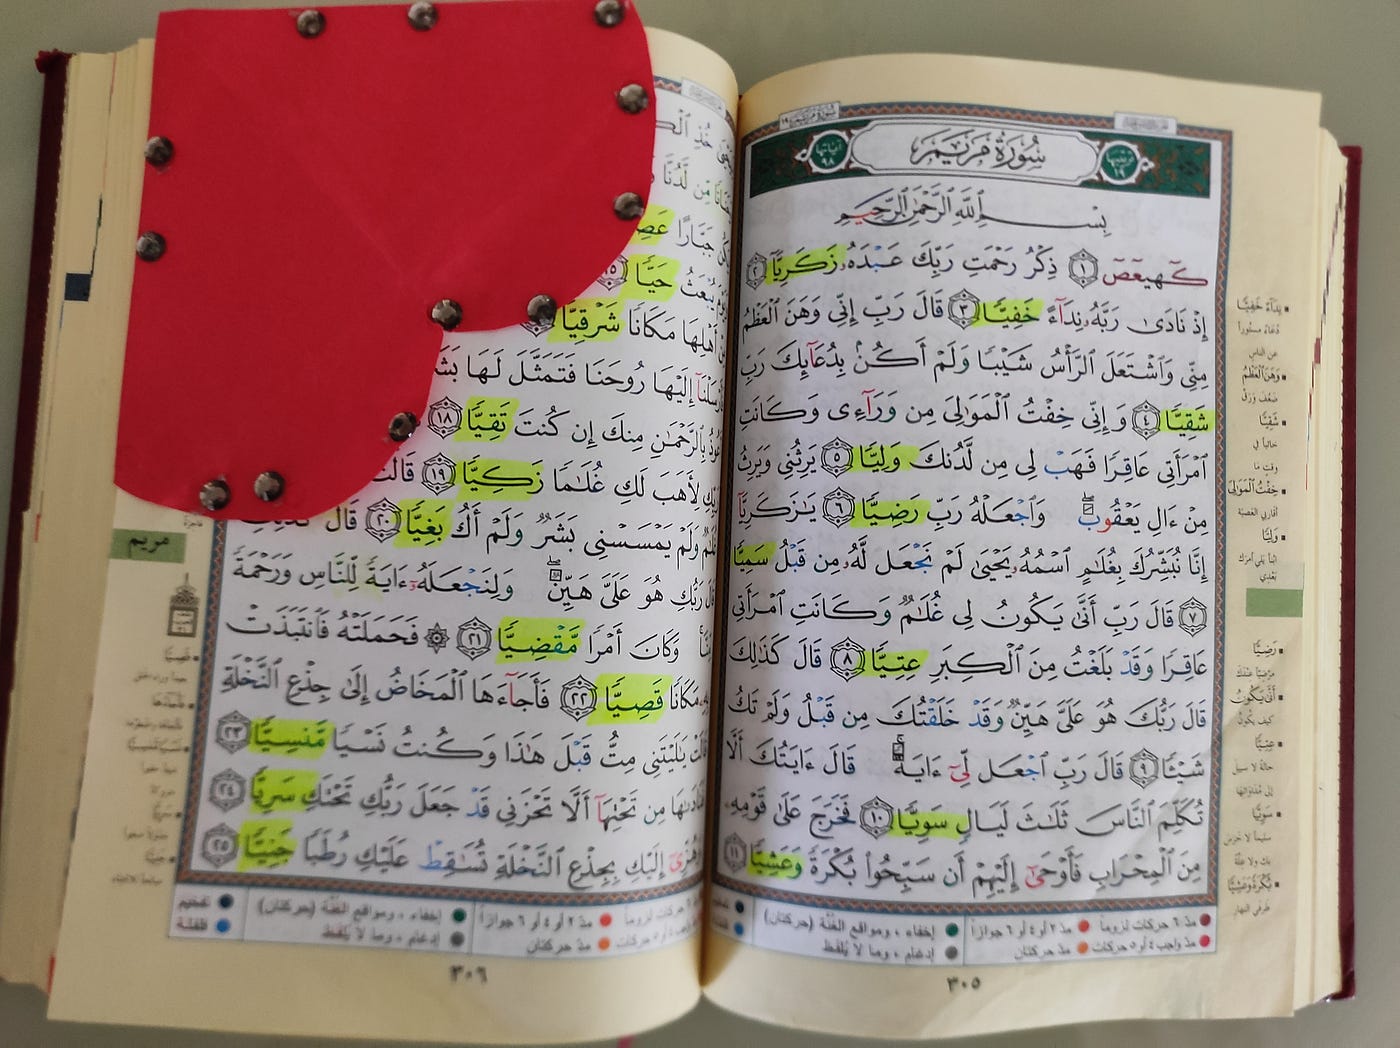 سورة مريم ١٩
ترتيبها ١٩
سُورَةُ مَرْيَمَ
آياتها ٩٨
بِسْمِ ٱللَّهِ ٱلرَّحْمَٰنِ ٱلرَّحِيمِ
كٓهيعٓصٓ ١ ذِكْرُ رَحْمَتِ رَبِّكَ عَبْدَهُۥ زَكَرِيَّآ ٢
إِذْ نَادَىٰ رَبَّهُۥ نِدَآءً خَفِيًّا ٣ قَالَ رَبِّ إِنِّى وَهَنَ ٱلْعَظْمُ
مِنِّى وَٱشْتَعَلَ ٱلرَّأْسُ شَيْبًا وَلَمْ أَكُنۢ بِدُعَآئِكَ رَبِّ
شَقِيًّا ٤ وَإِنِّى خِفْتُ ٱلْمَوَٰلِىَ مِن وَرَآءِى وَكَانَتِ
ٱمْرَأَتِى عَاقِرًا فَهَبْ لِى مِن لَّدُنكَ وَلِيًّا ٥ يَرِثُنِى وَيَرِثُ
مِنْ ءَالِ يَعْقُوبَ ۖ وَٱجْعَلْهُ رَبِّ رَضِيًّا ٦ يَٰزَكَرِيَّآ
إِنَّا نُبَشِّرُكَ بِغُلَٰمٍ ٱسْمُهُۥ يَحْيَىٰ لَمْ نَجْعَل لَّهُۥ مِن قَبْلُ سَمِيًّا
٧ قَالَ رَبِّ أَنَّىٰ يَكُونُ لِى غُلَٰمٌ وَكَانَتِ ٱمْرَأَتِى
عَاقِرًا وَقَدْ بَلَغْتُ مِنَ ٱلْكِبَرِ عِتِيًّا ٨ قَالَ كَذَٰلِكَ
قَالَ رَبُّكَ هُوَ عَلَىَّ هَيِّنٌ وَقَدْ خَلَقْتُكَ مِن قَبْلُ وَلَمْ تَكُ
شَيْـًٔا ٩ قَالَ رَبِّ ٱجْعَل لِّىٓ ءَايَةً ۚ قَالَ ءَايَتُكَ أَلَّا
تُكَلِّمَ ٱلنَّاسَ ثَلَٰثَ لَيَالٍ سَوِيًّا ١٠ فَخَرَجَ عَلَىٰ قَوْمِهِۦ
مِنَ ٱلْمِحْرَابِ فَأَوْحَىٰٓ إِلَيْهِمْ أَن سَبِّحُوا۟ بُكْرَةً وَعَشِيًّا ١١
نِدَاءً خَفِيًّا
دُعَاءً مستوراً
عن الناس
وَهَنَ ٱلْعَظْمُ
ضَعُفَ وَرَقَّ
شَقِيًّا
خائباً في
وقت ما
خِفْتُ ٱلْمَوَٰلِىَ
أقاربي العَصَبَة
وَلِيًّا
ابناً يلي أمرك
بعدي
رَضِيًّا
مَرْضِيّاً عِنْدَكَ
أَنَّىٰ يَكُونُ
كيف يكونُ
عِتِيًّا
حالةً لا سبيل
إلى مُدَاواتِها
سَوِيًّا
سليماً لا خرس
بك ولا علّة
بُكْرَةً وَعَشِيًّا
طرفي النهار
مدّ ٦ حركات لزوماً
مدّ ٢ أو ٤ أو ٦ جوازاً
إخفاء ، ومواقع الغُنَّة (حركتان)
مدّ واجب ٤ أو ٥ حركات
مدّ حركتان
إدغام ، وما لا يُلفَظ
٣٠٥
خُذِ
مِّن لَّدُنَّا
جَبَّارًا
يُبْعَثُ حَيًّا ١٥
أَهْلِهَا مَكَانًا شَرْقِيًّا
إِلَيْهَا رُوحَنَا فَتَمَثَّلَ لَهَا
بِٱلرَّحْمَٰنِ مِنكَ إِن كُنتَ تَقِيًّا ١٨
لِأَهَبَ لَكِ غُلَٰمًا زَكِيًّا ١٩ قَالَتْ
وَلَمْ يَمْسَسْنِى بَشَرٌ وَلَمْ أَكُ بَغِيًّا ٢٠ قَالَ كَذَٰلِكِ
رَبُّكِ هُوَ عَلَىَّ هَيِّنٌ ۖ وَلِنَجْعَلَهُۥٓ ءَايَةً لِّلنَّاسِ وَرَحْمَةً
مِّنَّا ۚ وَكَانَ أَمْرًا مَّقْضِيًّا ٢١ ۞ فَحَمَلَتْهُ فَٱنتَبَذَتْ
بِهِۦ مَكَانًا قَصِيًّا ٢٢ فَأَجَآءَهَا ٱلْمَخَاضُ إِلَىٰ جِذْعِ ٱلنَّخْلَةِ
قَالَتْ يَٰلَيْتَنِى مِتُّ قَبْلَ هَٰذَا وَكُنتُ نَسْيًا مَّنسِيًّا ٢٣
فَنَادَىٰهَا مِن تَحْتِهَآ أَلَّا تَحْزَنِى قَدْ جَعَلَ رَبُّكِ تَحْتَكِ سَرِيًّا ٢٤
وَهُزِّىٓ إِلَيْكِ بِجِذْعِ ٱلنَّخْلَةِ تُسَٰقِطْ عَلَيْكِ رُطَبًا جَنِيًّا ٢٥
مريم
مدّ ٢ أو ٤ أو ٦ جوازاً
إخفاء ، ومواقع الغُنَّة (حركتان)
تفخيم
مدّ حركتان
إدغام ، وما لا يُلفَظ
قلقلة
٣٠٦